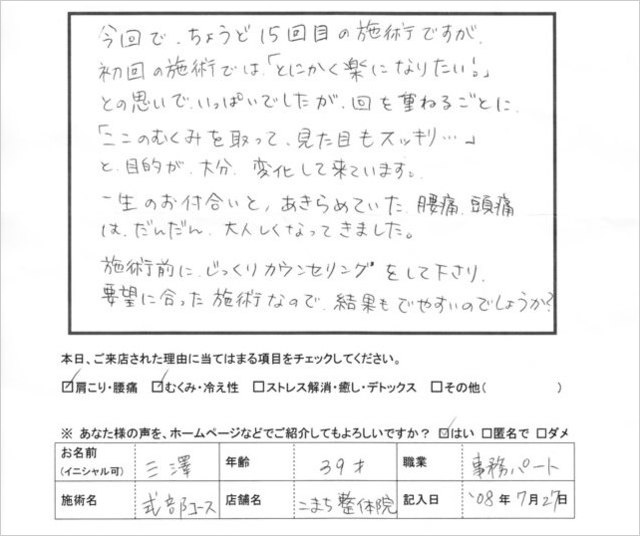 今回で、ちょうど15回目の施術ですが、
初回の施術では、「とにかく楽になりたい!。」
との思いで、いっぱいでしたが、回を重ねるごとに、
「ここのむくみを取って、見た目もスッキリ…」
と、目的が、大分、変化して来ています。
一生のお付合いと、あきらめていた、腰痛、頭痛
は、だんだん、大人しくなってきました。
施術前に、じっくりカウンセリングをして下さり、
要望に合った施術なので、結果もでやすいのでしょうか?
本日、ご来店された理由に当てはまる項目をチェックしてください。
☑肩こり・腰痛 ☑むくみ・冷え性 □ストレス解消・癒し・デトックス □その他( )
※ あなた様の声を、ホームページなどでご紹介してもよろしいですか? ☑はい □匿名で □ダメ
お名前 (イニシャル可) 三澤 年齢 39才 職業 事務パート
施術名 式部コース 店舗名 こまち整体院 記入日 '08年7月27日